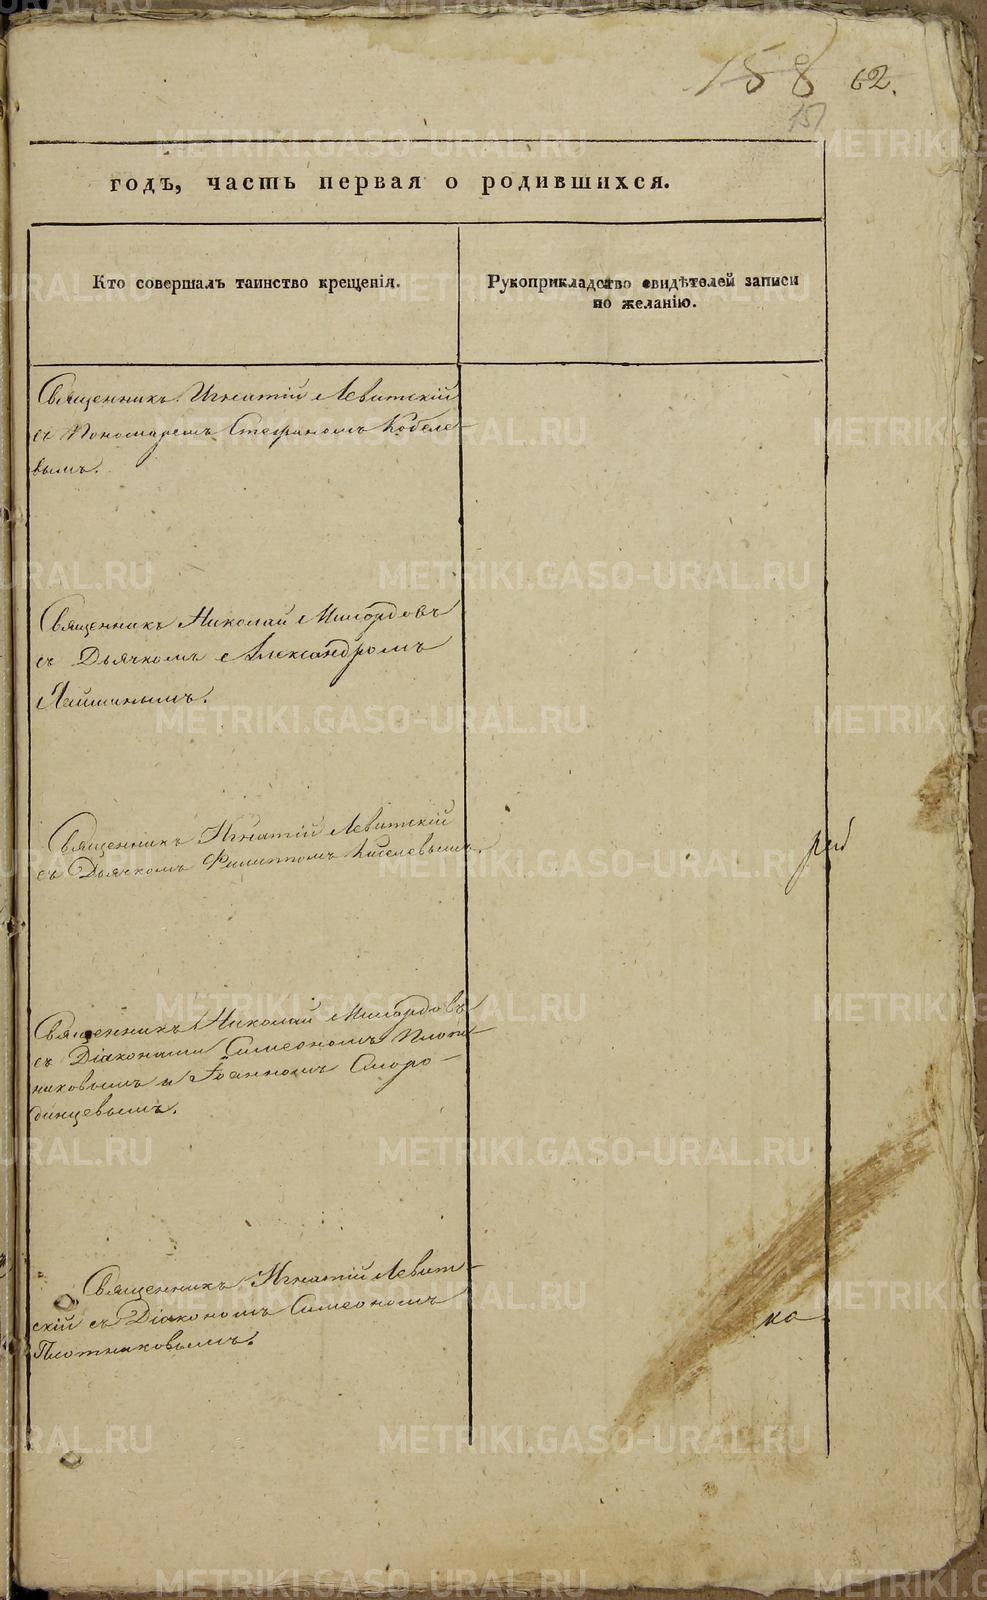 158 62.
151
годъ, часть первая о родившихся.
Кто совершалъ таинство крещенія.
Рукоприкладство свидѣтелей записи
по желанію.
Священникъ Игнатій Левитскій
съ Пономаремъ Стефаномъ Кобеле-
вымъ.
Священникъ Николай Милордовъ
съ Дьячкомъ Александромъ
Священникъ Игнатій Левитскій
съ Дьячкомъ Филиппомъ Киселевымъ.
Священникъ Николай Милордовъ
съ Діаконами Симеономъ Плот-
никовымъ и Іоанномъ Сморо-
динцевымъ.
Священникъ Игнатій Левит-
скій съ Діакономъ Симеономъ
Плотниковымъ.
ка
METRIKI.GASO-URAL.RU